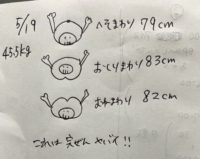 5/19
へそまわり 79cm
45.5kg
おしりまわり 83cm
むねまわり 82cm
これは完ぜんヤバイ!!